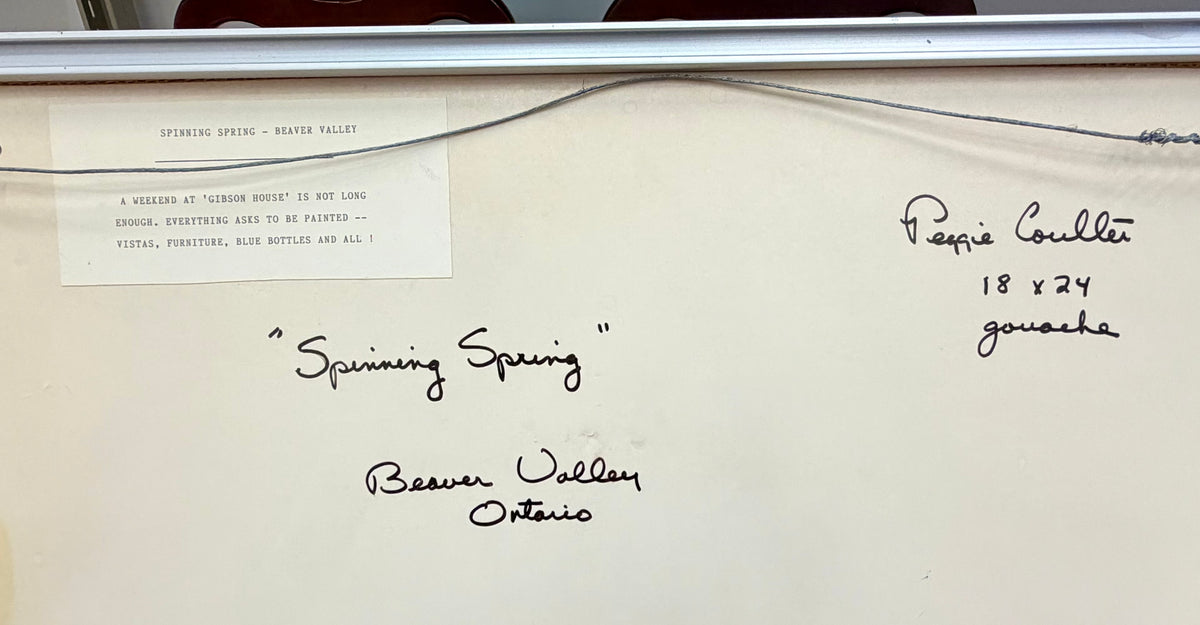 SPINNING SPRING - BEAVER VALLEY
A WEEKEND AT 'GIBSON HOUSE' IS NOT LONG
ENOUGH. EVERYTHING ASKS TO BE PAINTED --
VISTAS, FURNITURE, BLUE BOTTLES AND ALL !
Peggie Coulter
18 x 24
gouache
"Spinning Spring"
Beaver Valley
Ontario